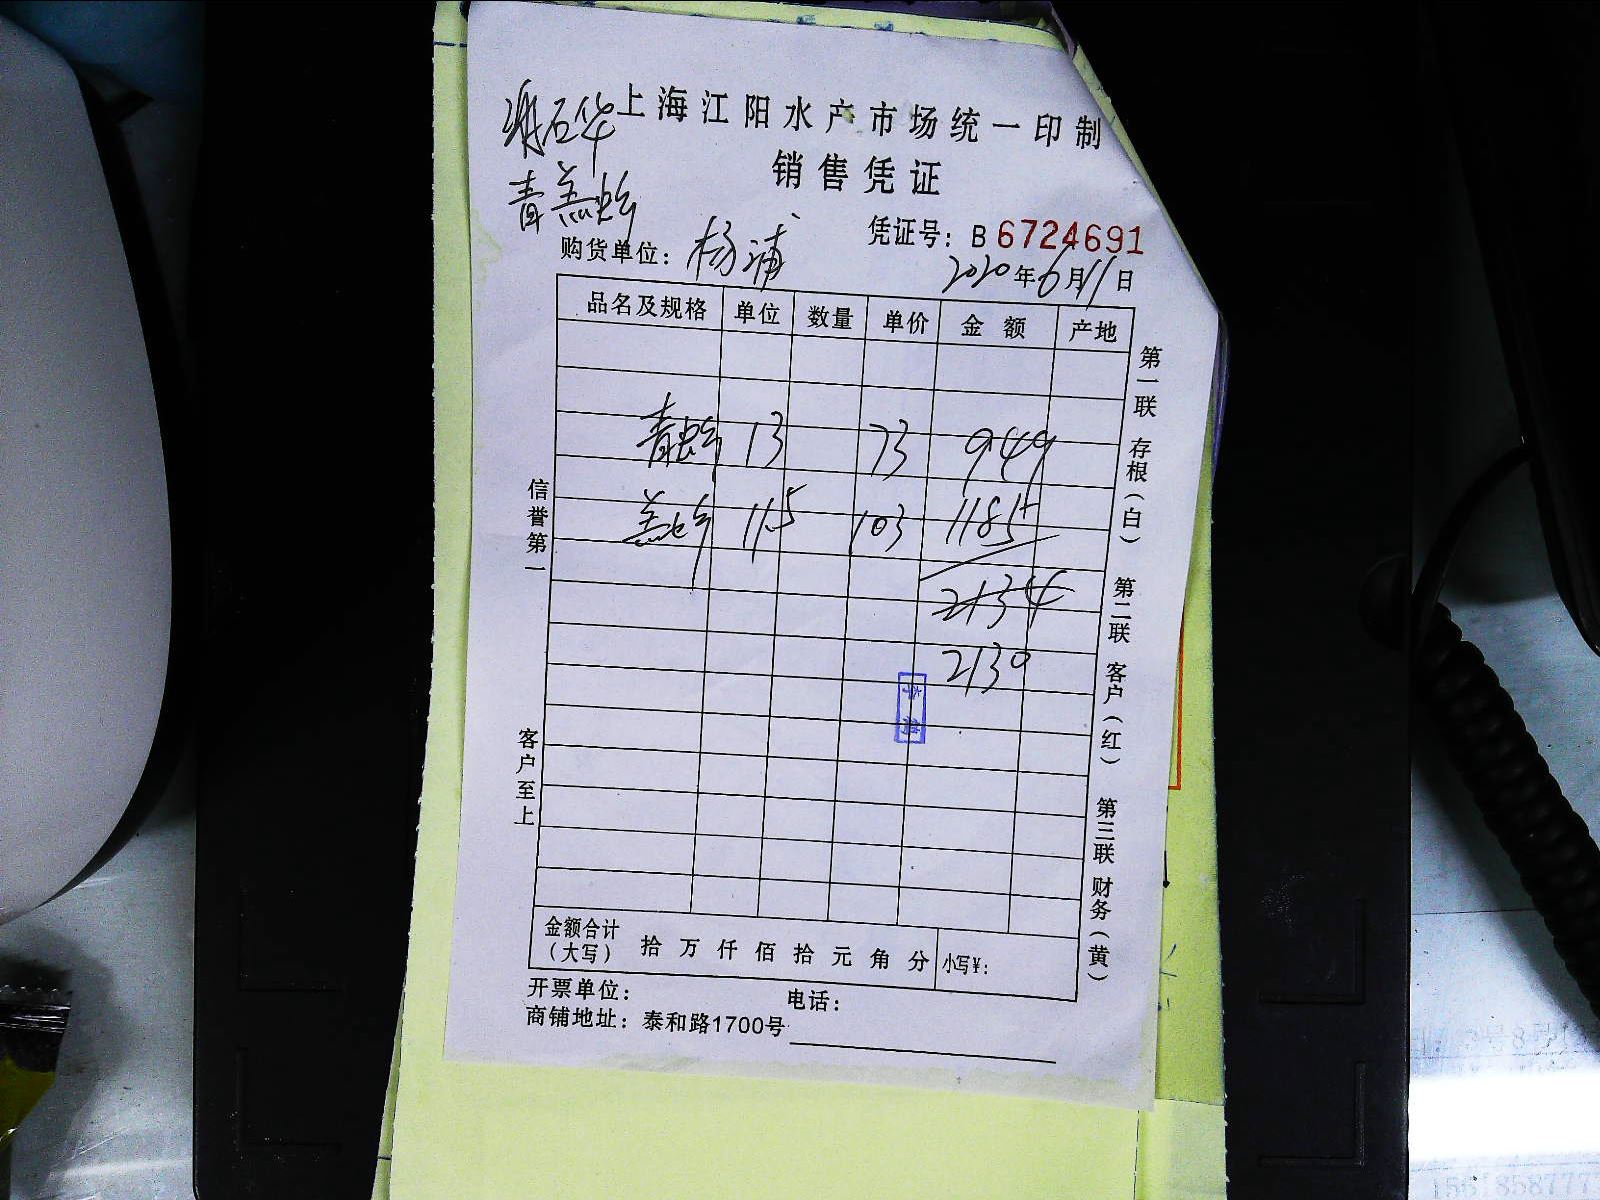 上海江阳水产市场统一印制
销售凭证
凭证号：B 6724691
购货单位：杨浦
2020年6月11日
品名及规格 单位 数量 单价 金额 产地
青 13 73 949
11.5 103 1185
2134
2130
信誉第一
客户至上
第一联 存根（白）
第二联 客户（红）
第三联 财务（黄）
金额合计（大写） 拾 万 仟 佰 拾 元 角 分 小写¥：
开票单位： 电话：
商铺地址：泰和路1700号